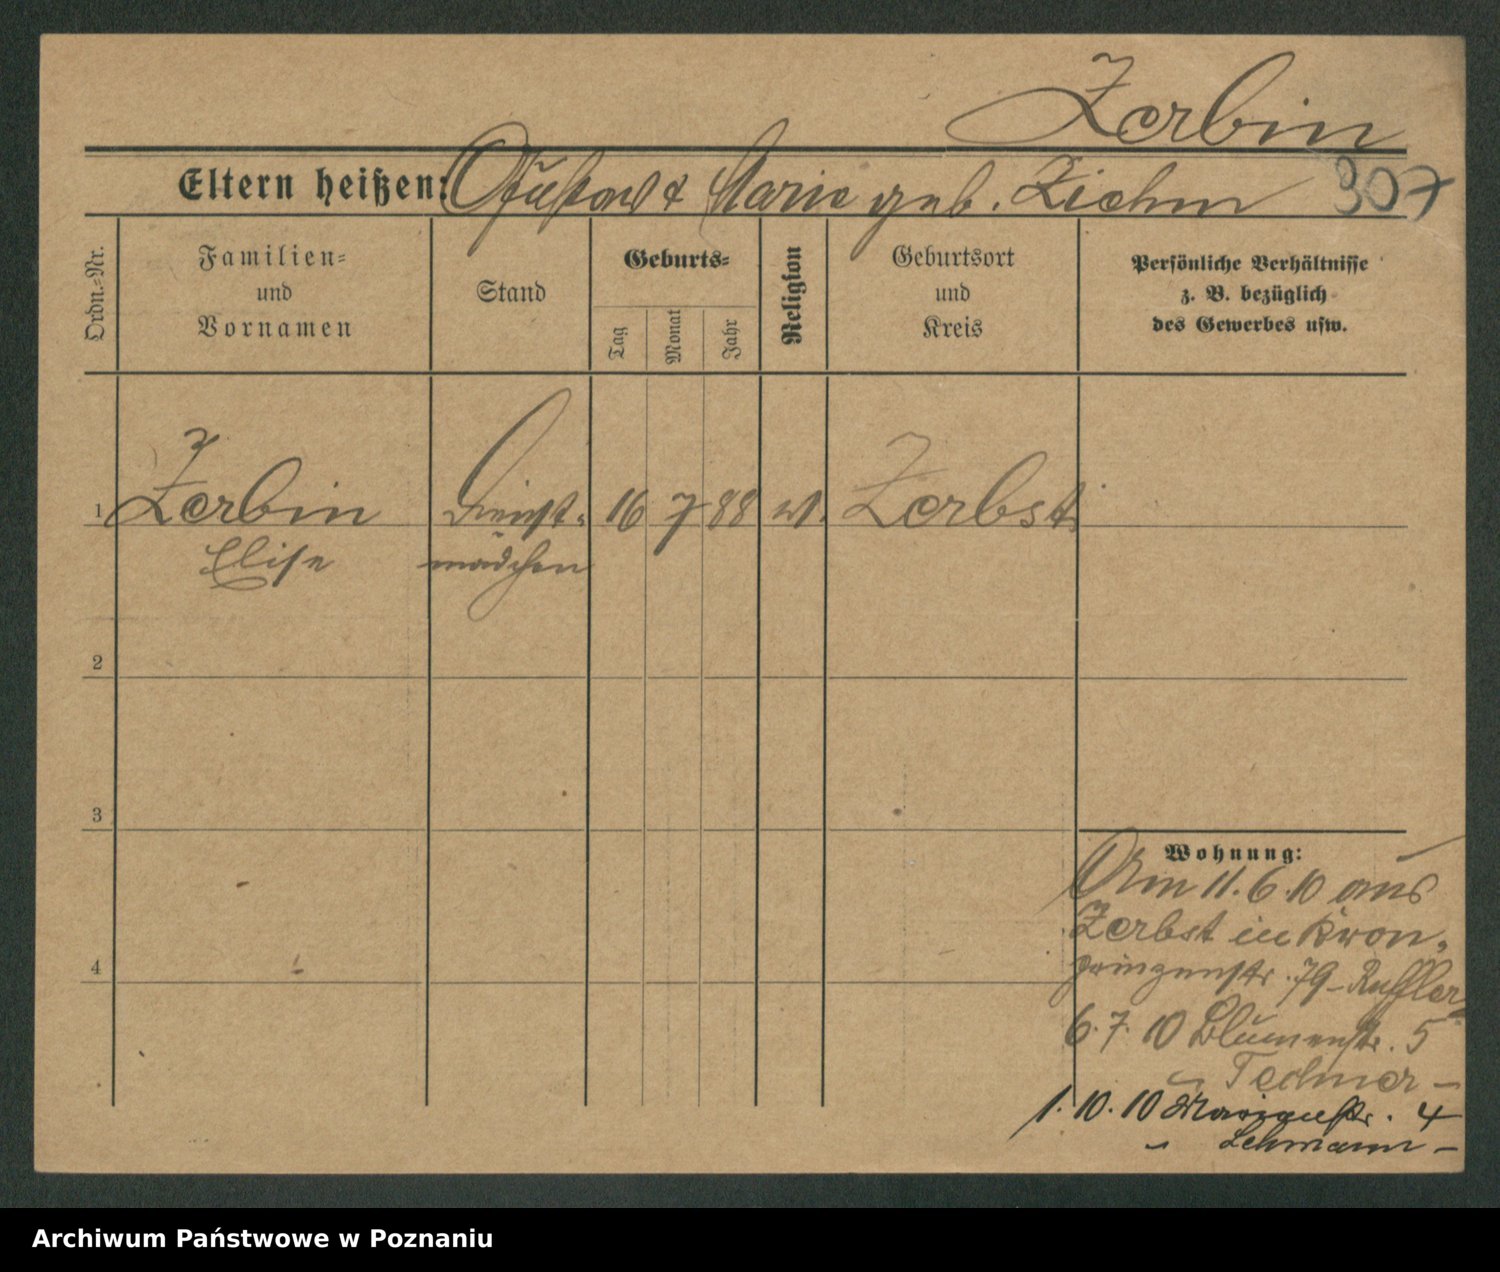 Zerbin
Eltern heißen: Gustav & Marie geb. Ziehm 307
Ordn.-Nr.
Familien-
und
Vornamen
Stand
Geburts-
Tag
Monat
Jahr
Religion
Geburtsort
und
Kreis
Persönliche Verhältnisse
z. B. bezüglich
des Gewerbes usw.
1 Zerbin Dienst- 16 7 88 Zerbst
Elise mädchen
2
3
4
Wohnung:
Am 11.6.10 aus
Zerbst in Kron-
prinzenstr. 79 -
6.7.10 Blumenstr. 5
1.10.10 4
Lehmann -
Archiwum Państwowe w Poznaniu